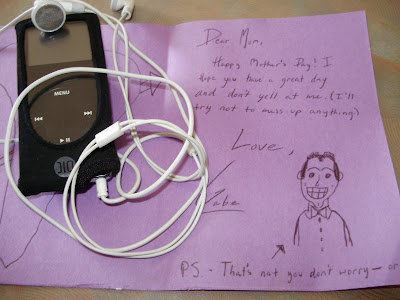 Dear Mom,
Happy Mother's Day! I
hope you have a great day
and don't yell at me. (I'll
try not to mess up anything)
MENU
Love,
Zabe
PS - That's not you don't worry - or